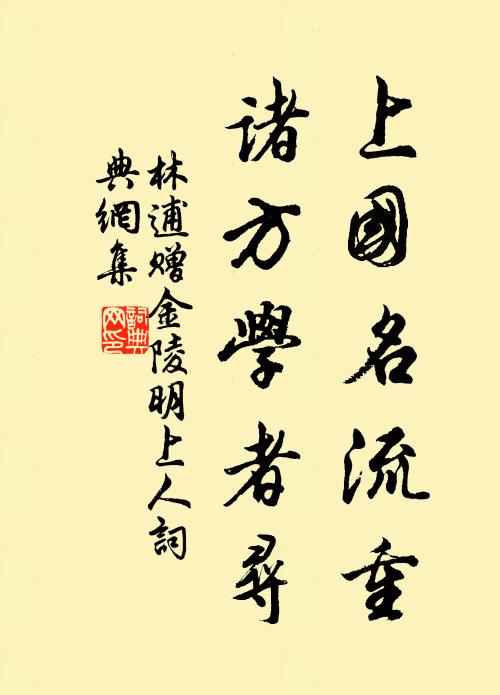 上國名流重
诸方學者尋
林逋赠金陵明上人詞
典網集
詞典
网印